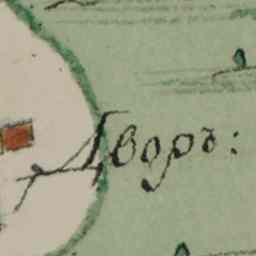 Дворъ: